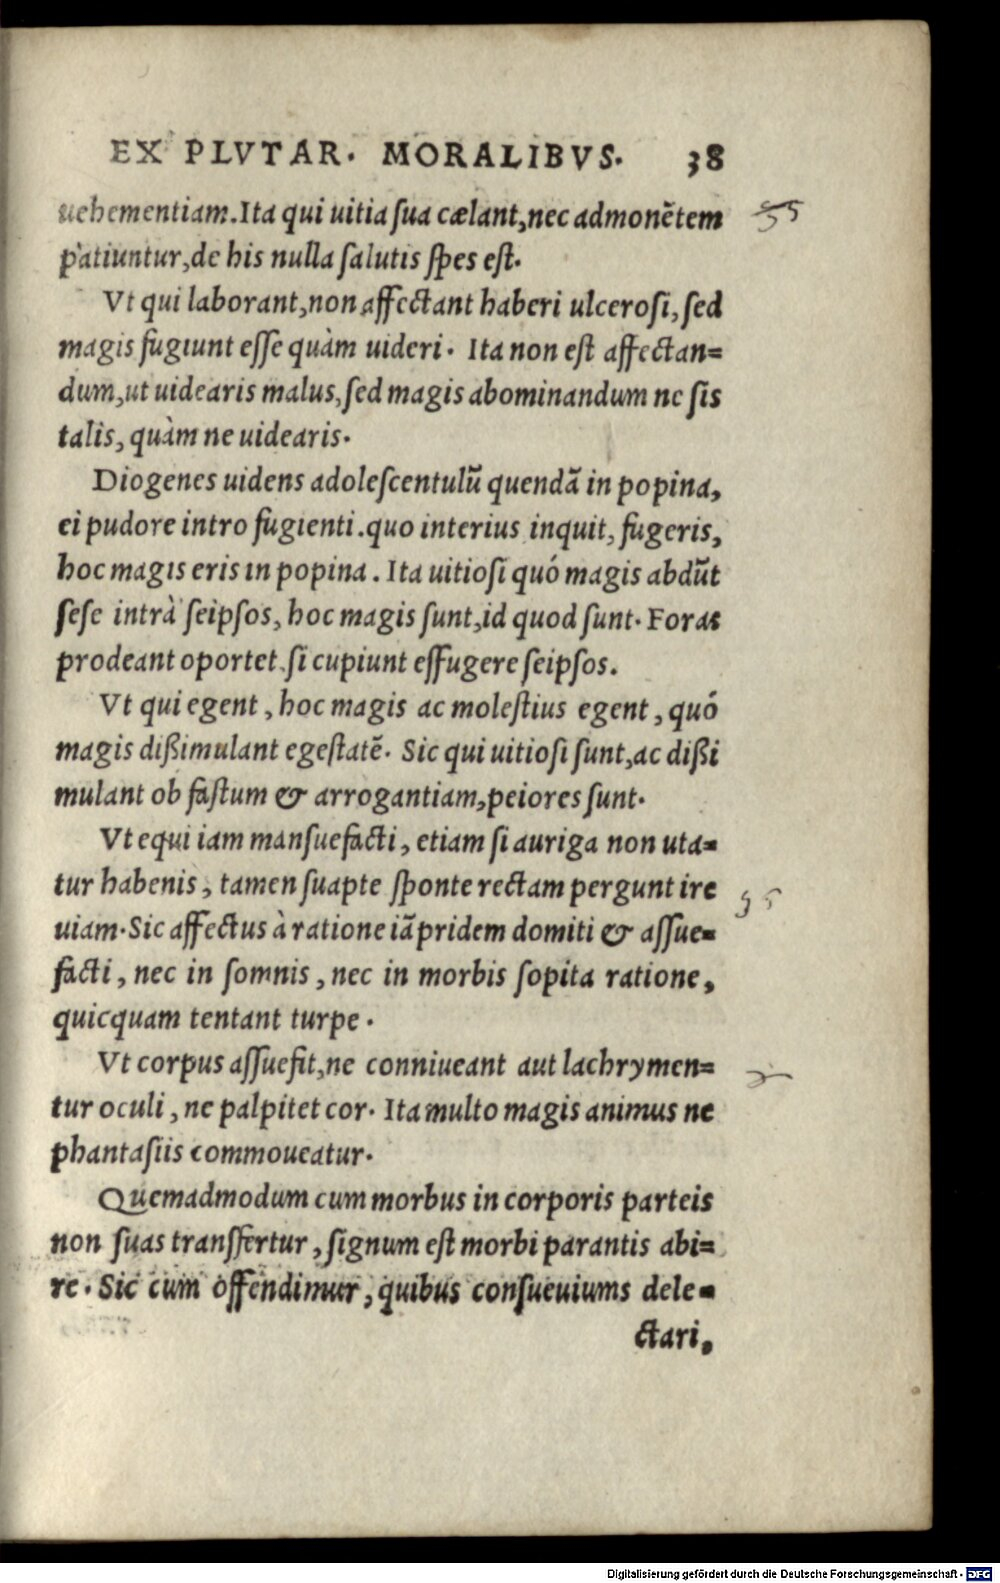 EX PLVTAR. MORALIBVS. 38
uehementiam. Ita qui uitia sua cælant, nec admonētem
patiuntur, de his nulla salutis spes est.
Vt qui laborant, non affectant haberi ulcerosi, sed
magis fugiunt esse quàm uideri. Ita non est affectan=
dum, ut uidearis malus, sed magis abominandum ne sis
talis, quàm ne uidearis.
Diogenes uidens adolescentulū quendā in popina,
ei pudore intro fugienti. quo interius inquit, fugeris,
hoc magis eris in popina. Ita uitiosi quó magis abdūt
sese intrà seipsos, hoc magis sunt, id quod sunt. Foras
prodeant oportet si cupiunt effugere seipsos.
Vt qui egent, hoc magis ac molestius egent, quó
magis dißimulant egestatē. Sic qui uitiosi sunt, ac dißi
mulant ob fastum & arrogantiam, peiores sunt.
Vt equi iam mansuefacti, etiam si auriga non uta=
tur habenis, tamen suapte sponte rectam pergunt ire
uiam. Sic affectus à ratione iā pridem domiti & assue=
facti, nec in somnis, nec in morbis sopita ratione,
quicquam tentant turpe.
Vt corpus assuefit, ne conniueant aut lachrymen=
tur oculi, ne palpitet cor. Ita multo magis animus ne
phantasiis commoueatur.
Quemadmodum cum morbus in corporis parteis
non suas transfertur, signum est morbi parantis abi=
re. Sic cum offendimur, quibus consueuiums dele=
ctari,
Digitalisierung gefördert durch die Deutsche Forschungsgemeinschaft - DFG